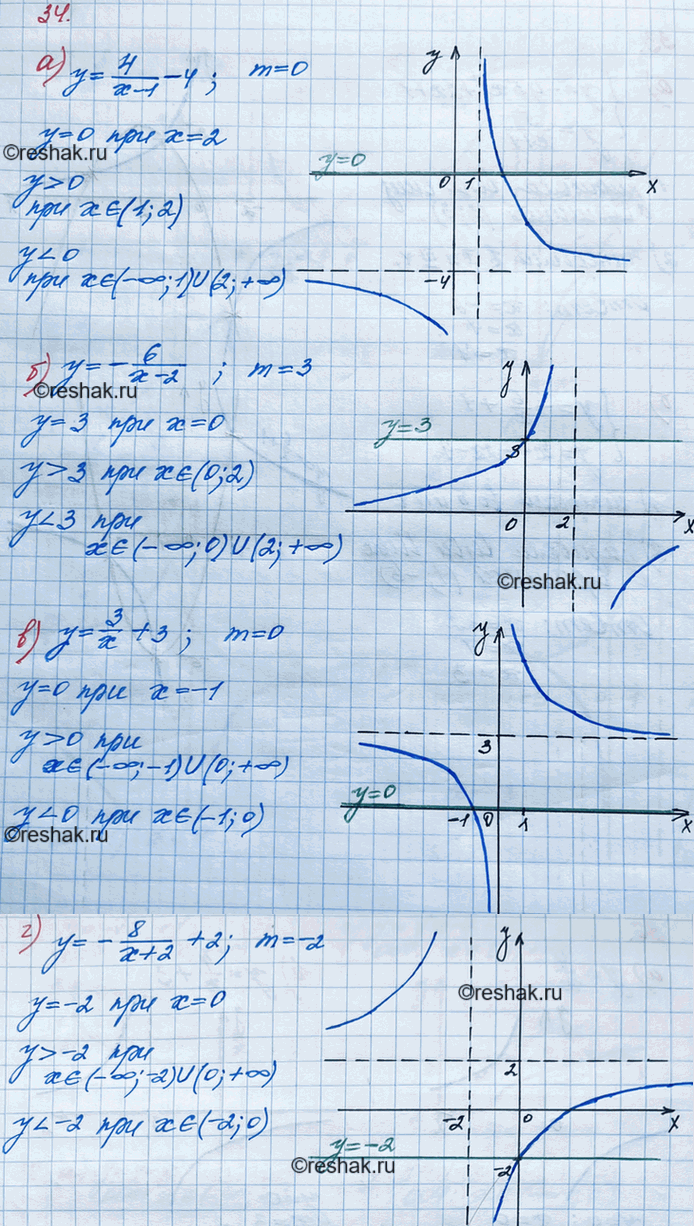 34.
а) y = 4/(x-1) - 4 ; m=0
y=0 при x=2
©reshak.ru
y>0
при x∈(1; 2)
y<0
при x∈(-∞; 1)∪(2; +∞)
y
y=0
0
1
x
-4
б) y = - 6/(x-2) ; m=3
©reshak.ru
y=3 при x=0
y>3 при x∈(0; 2)
y<3 при
x∈(-∞; 0)∪(2; +∞)
y
y=3
3
0
2
x
©reshak.ru
в) y = 3/x + 3 ; m=0
y=0 при x=-1
y>0 при
x∈(-∞; -1)∪(0; +∞)
y<0 при x∈(-1; 0)
©reshak.ru
y
3
y=0
-1
0
1
x
г) y = - 8/(x+2) + 2; m=-2
y=-2 при x=0
y>-2 при
x∈(-∞; -2)∪(0; +∞)
y<-2 при x∈(-2; 0)
y
©reshak.ru
2
-2
0
x
y=-2
-2
©reshak.ru